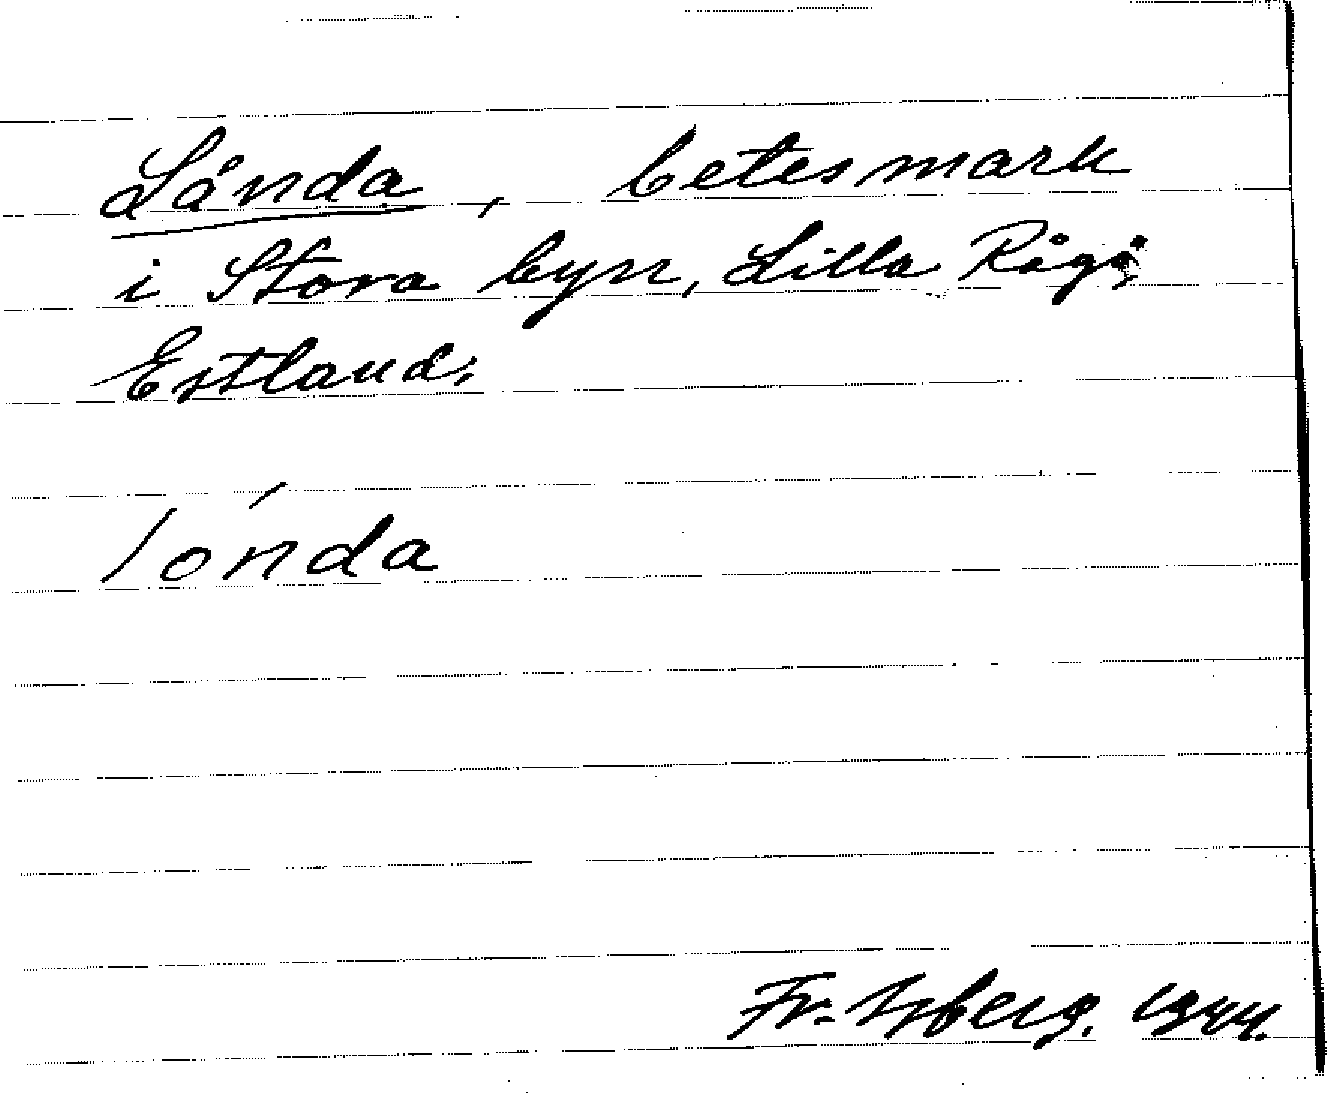 Lånda, betesmark
i Stora byn, Lilla Rågö,
Estland.
lónda
Fr. Isberg. 1944.